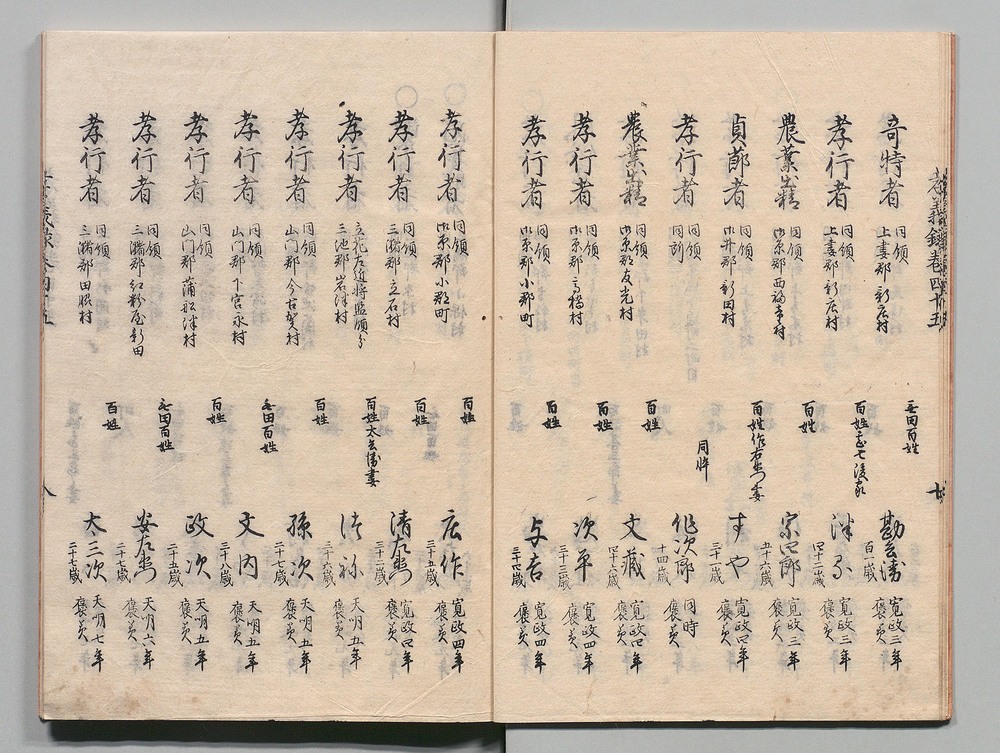 孝義録巻四十五
奇特者 同領 上妻郡新庄村 無田百姓 勘兵衛 百一歳 寛政三年 褒美
孝行者 同領 上妻郡新庄村 百姓 四十二歳 寛政三年 褒美
農業出精 同領 御原郡西福童村 百姓 宗四郎 五十六歳 寛政三年 褒美
貞節者 同領 御井郡新田村 百姓作右衛門妻 すや 三十一歳 寛政四年 褒美
孝行者 同領 同所 同忰 作次郎 十四歳 同時 褒美
農業出精 同領 御原郡友光村 百姓 文蔵 四十六歳 寛政四年 褒美
孝行者 同領 御原郡高橋村 百姓 次平 三十三歳 寛政四年 褒美
孝行者 同領 御原郡小郡町 百姓 与吉 三十四歳 寛政四年 褒美
孝行者 同領 御原郡小郡町 百姓 庄作 三十五歳 寛政四年 褒美
孝行者 同領 三潴郡立石村 百姓 清左衛門 三十二歳 寛政四年 褒美
孝行者 立花左近将監領分 三池郡岩津村 百姓太兵衛妻 三十六歳 天明五年 褒美
孝行者 同領 山門郡今古賀村 百姓 孫次 二十七歳 天明五年 褒美
孝行者 同領 山門郡下宮永村 無田百姓 文内 三十八歳 天明五年 褒美
孝行者 同領 山門郡蒲船津村 百姓 政次 二十五歳 天明五年 褒美
孝行者 同領 三潴郡紅粉屋新田 無田百姓 安左衛門 二十七歳 天明六年 褒美
孝行者 同領 三潴郡田脇村 百姓 太三次 三十七歳 天明七年 褒美